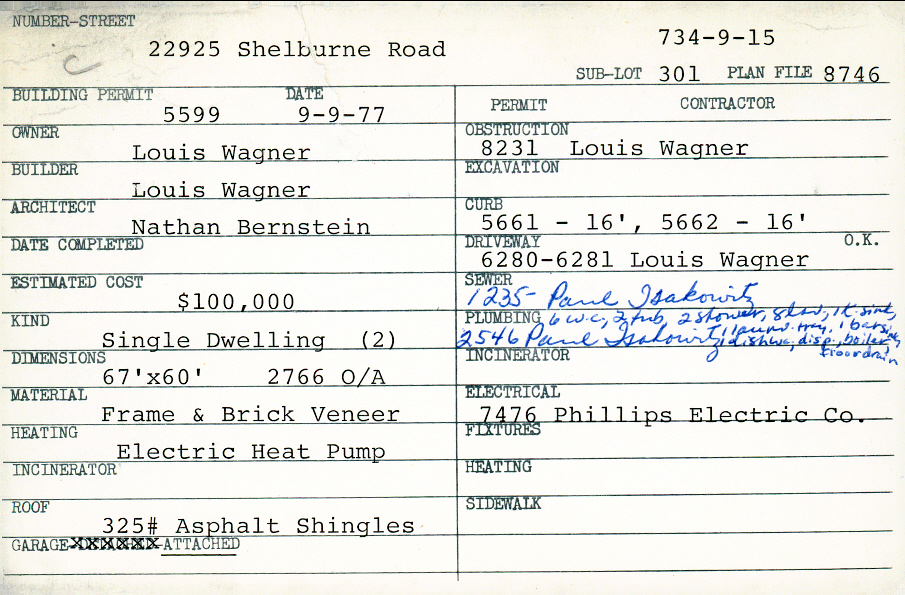 NUMBER-STREET
22925 Shelburne Road
734-9-15
SUB-LOT 301 PLAN FILE 8746
BUILDING PERMIT DATE
5599 9-9-77
OWNER
Louis Wagner
BUILDER
Louis Wagner
ARCHITECT
Nathan Bernstein
DATE COMPLETED
ESTIMATED COST
$100,000
KIND
Single Dwelling (2)
DIMENSIONS
67'x60' 2766 O/A
MATERIAL
Frame & Brick Veneer
HEATING
Electric Heat Pump
INCINERATOR
ROOF
325# Asphalt Shingles
GARAGE ATTACHED
PERMIT CONTRACTOR
OBSTRUCTION
8231 Louis Wagner
EXCAVATION
CURB
5661 - 16', 5662 - 16'
DRIVEWAY O.K.
6280-6281 Louis Wagner
SEWER
1235- Paul Isakowitz
PLUMBING 6 w.c., 2 tub, 2 shower, 8 lav, 1 K. sink,
2546 Paul Isakowitz 1 laund. tray, 1 bar sink,
1 dishwa, disp., boiler
floor drain
INCINERATOR
ELECTRICAL
7476 Phillips Electric Co.
FIXTURES
HEATING
SIDEWALK